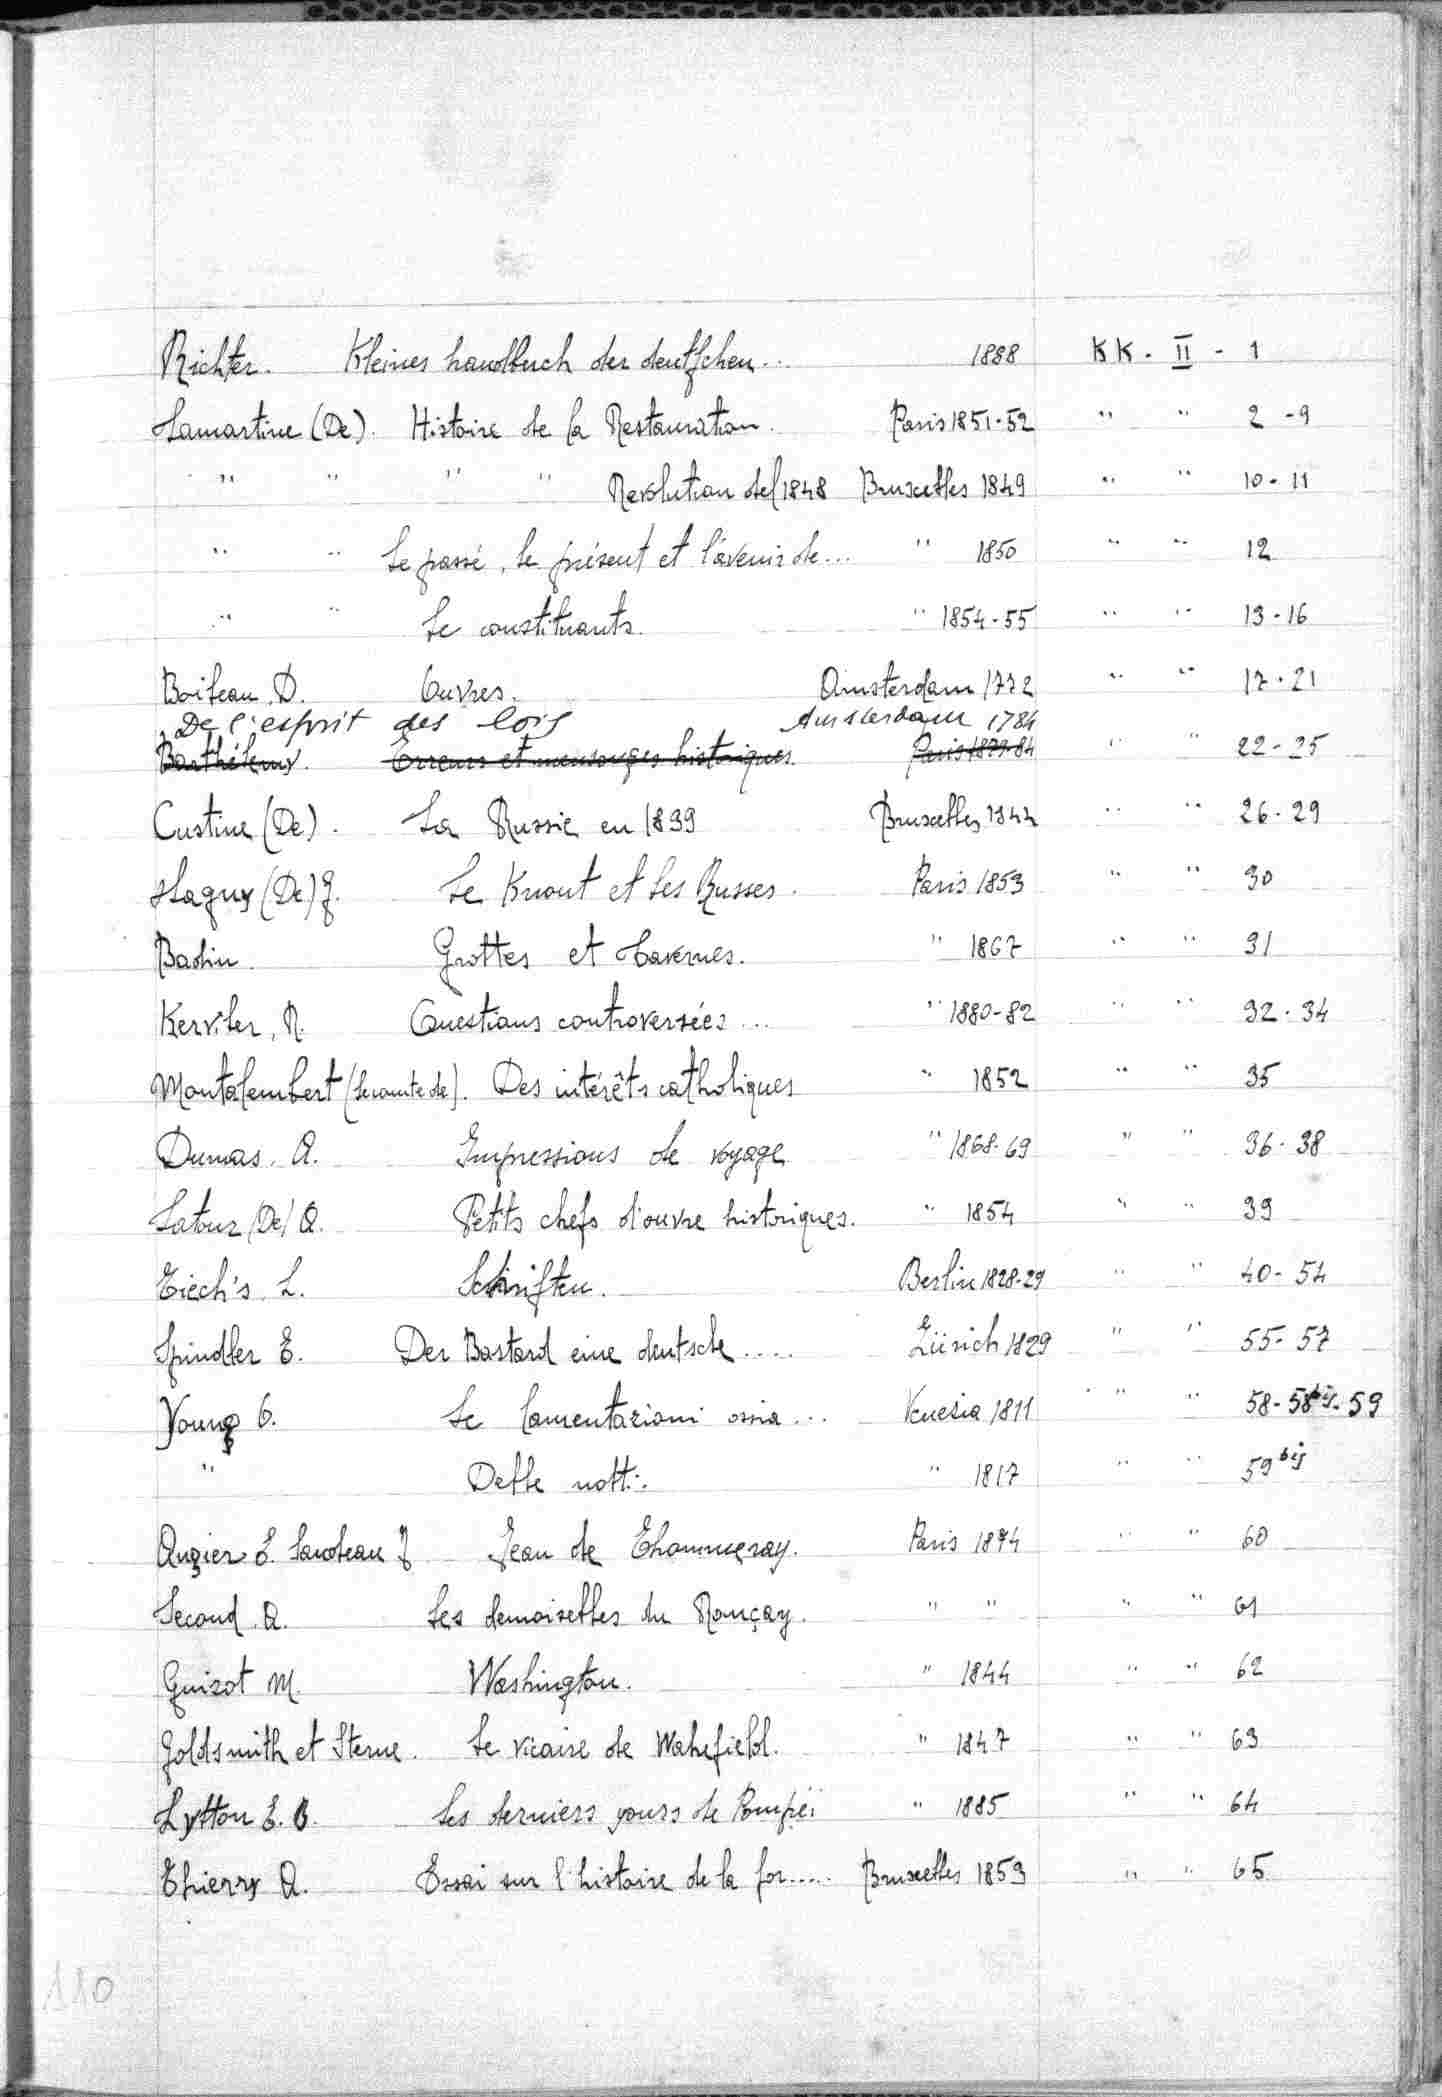 Richter. Kleines handbuch der deutschen... 1888 KK. II - 1
Lamartine (De). Histoire de la Restauration. Paris 1851-52 " " 2 - 9
" " " " Revolution del 1848 Bruxelles 1849 " " 10 - 11
" " Le passé, le présent et l'avenir de... " 1850 " " 12
" " Le constituants. " 1854-55 " " 13 - 16
Boileau, D. Ouvres. Amsterdam 1772 " " 17 - 21
De l'esprit des lois Amsterdam 1784
Barthélemy. Erreurs et mensonges historiques. Paris 1879-84 " " 22 - 25
Custine (De). La Russie en 1839 Bruxelles 1844 " " 26 - 29
Lagny (De) G. Le Knout et les Russes. Paris 1853 " " 30
Badin. Grottes et Cavernes. " 1867 " " 31
Kerviler, R. Questions controversées... " 1880-82 " " 32 - 34
Montalembert (le comte de). Des intérêts catholiques " 1852 " " 35
Dumas. A. Impressions de voyage " 1868-69 " " 36 - 38
Latour (De) A. Petits chefs d'ouvre historiques. " 1854 " " 39
Tiech's. L. Schriften. Berlin 1828-29 " " 40 - 54
Spindler E. Der Bastard eine deutsche..... Zürich 1829 " " 55 - 57
Young O. Le lamentazioni ossia... Venezia 1811 " " 58 - 58 bis - 59
" Delle notti. " 1817 " " 59 bis
Augier E. Sandeau J Jean de Thommeray. Paris 1874 " " 60
Second. A. Les demoiselles du Ronçay. " " " " 61
Guizot M. Washington. " 1844 " " 62
Goldsmith et Sterne. Le vicaire de Wakefield. " 1847 " " 63
Lytton E. B. Les derniers yours de Pompéi " 1885 " " 64
Thierry A. Essai sur l'histoire de la for..... Bruxelles 1853 " " 65
110